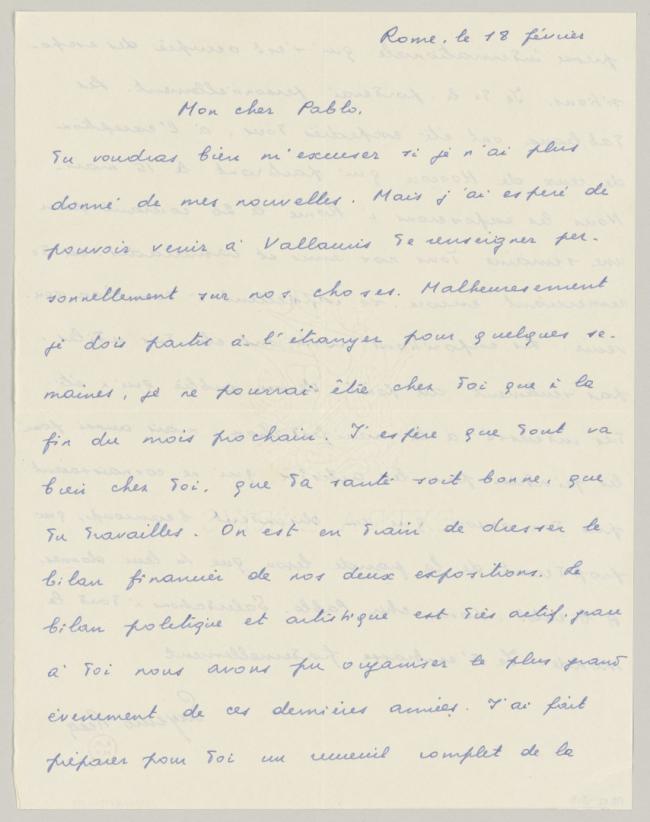 Rome, le 18 février
Mon cher Pablo,
Tu voudras bien m'excuser si je n'ai plus
donné de mes nouvelles. Mais j'ai espéré de
pouvoir venir à Vallauris te renseigner per-
sonnellement sur nos choses. Malheuresement
je dois partir à l'étranger pour quelques se-
maines, je ne pourrai être chez toi que à la
fin du mois prochain. J'espère que tout va
bien chez toi, que ta santé soit bonne, que
tu travailles. On est en train de dresser le
bilan financier de nos deux expositions. Le
bilan politique et artistique est très actif, grace
à toi nous avons pu organiser le plus grand
évenement de ces dernières années. J'ai fait
préparer pour toi un recueil complet de la